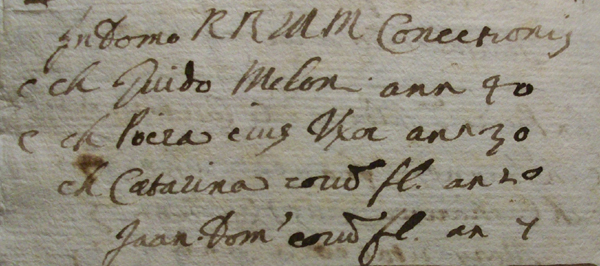 In Domo RR MM Concetionis
c ch Guido Melon ann 40
c ch Piera eius Vxor ann 30
ch Catarina eorũd fl. an 20
Joan. Dom' eorũd fl. an 7